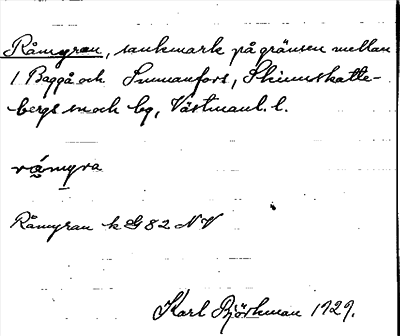 Råmyran, sankmark på gränsen mellan
1 Baggå och Sunnanfors, Skinnskatte-
bergs sn och bg, Västmanl. l.
råmyra
Råmyran k G 82 NV
Karl Björkman 1929.